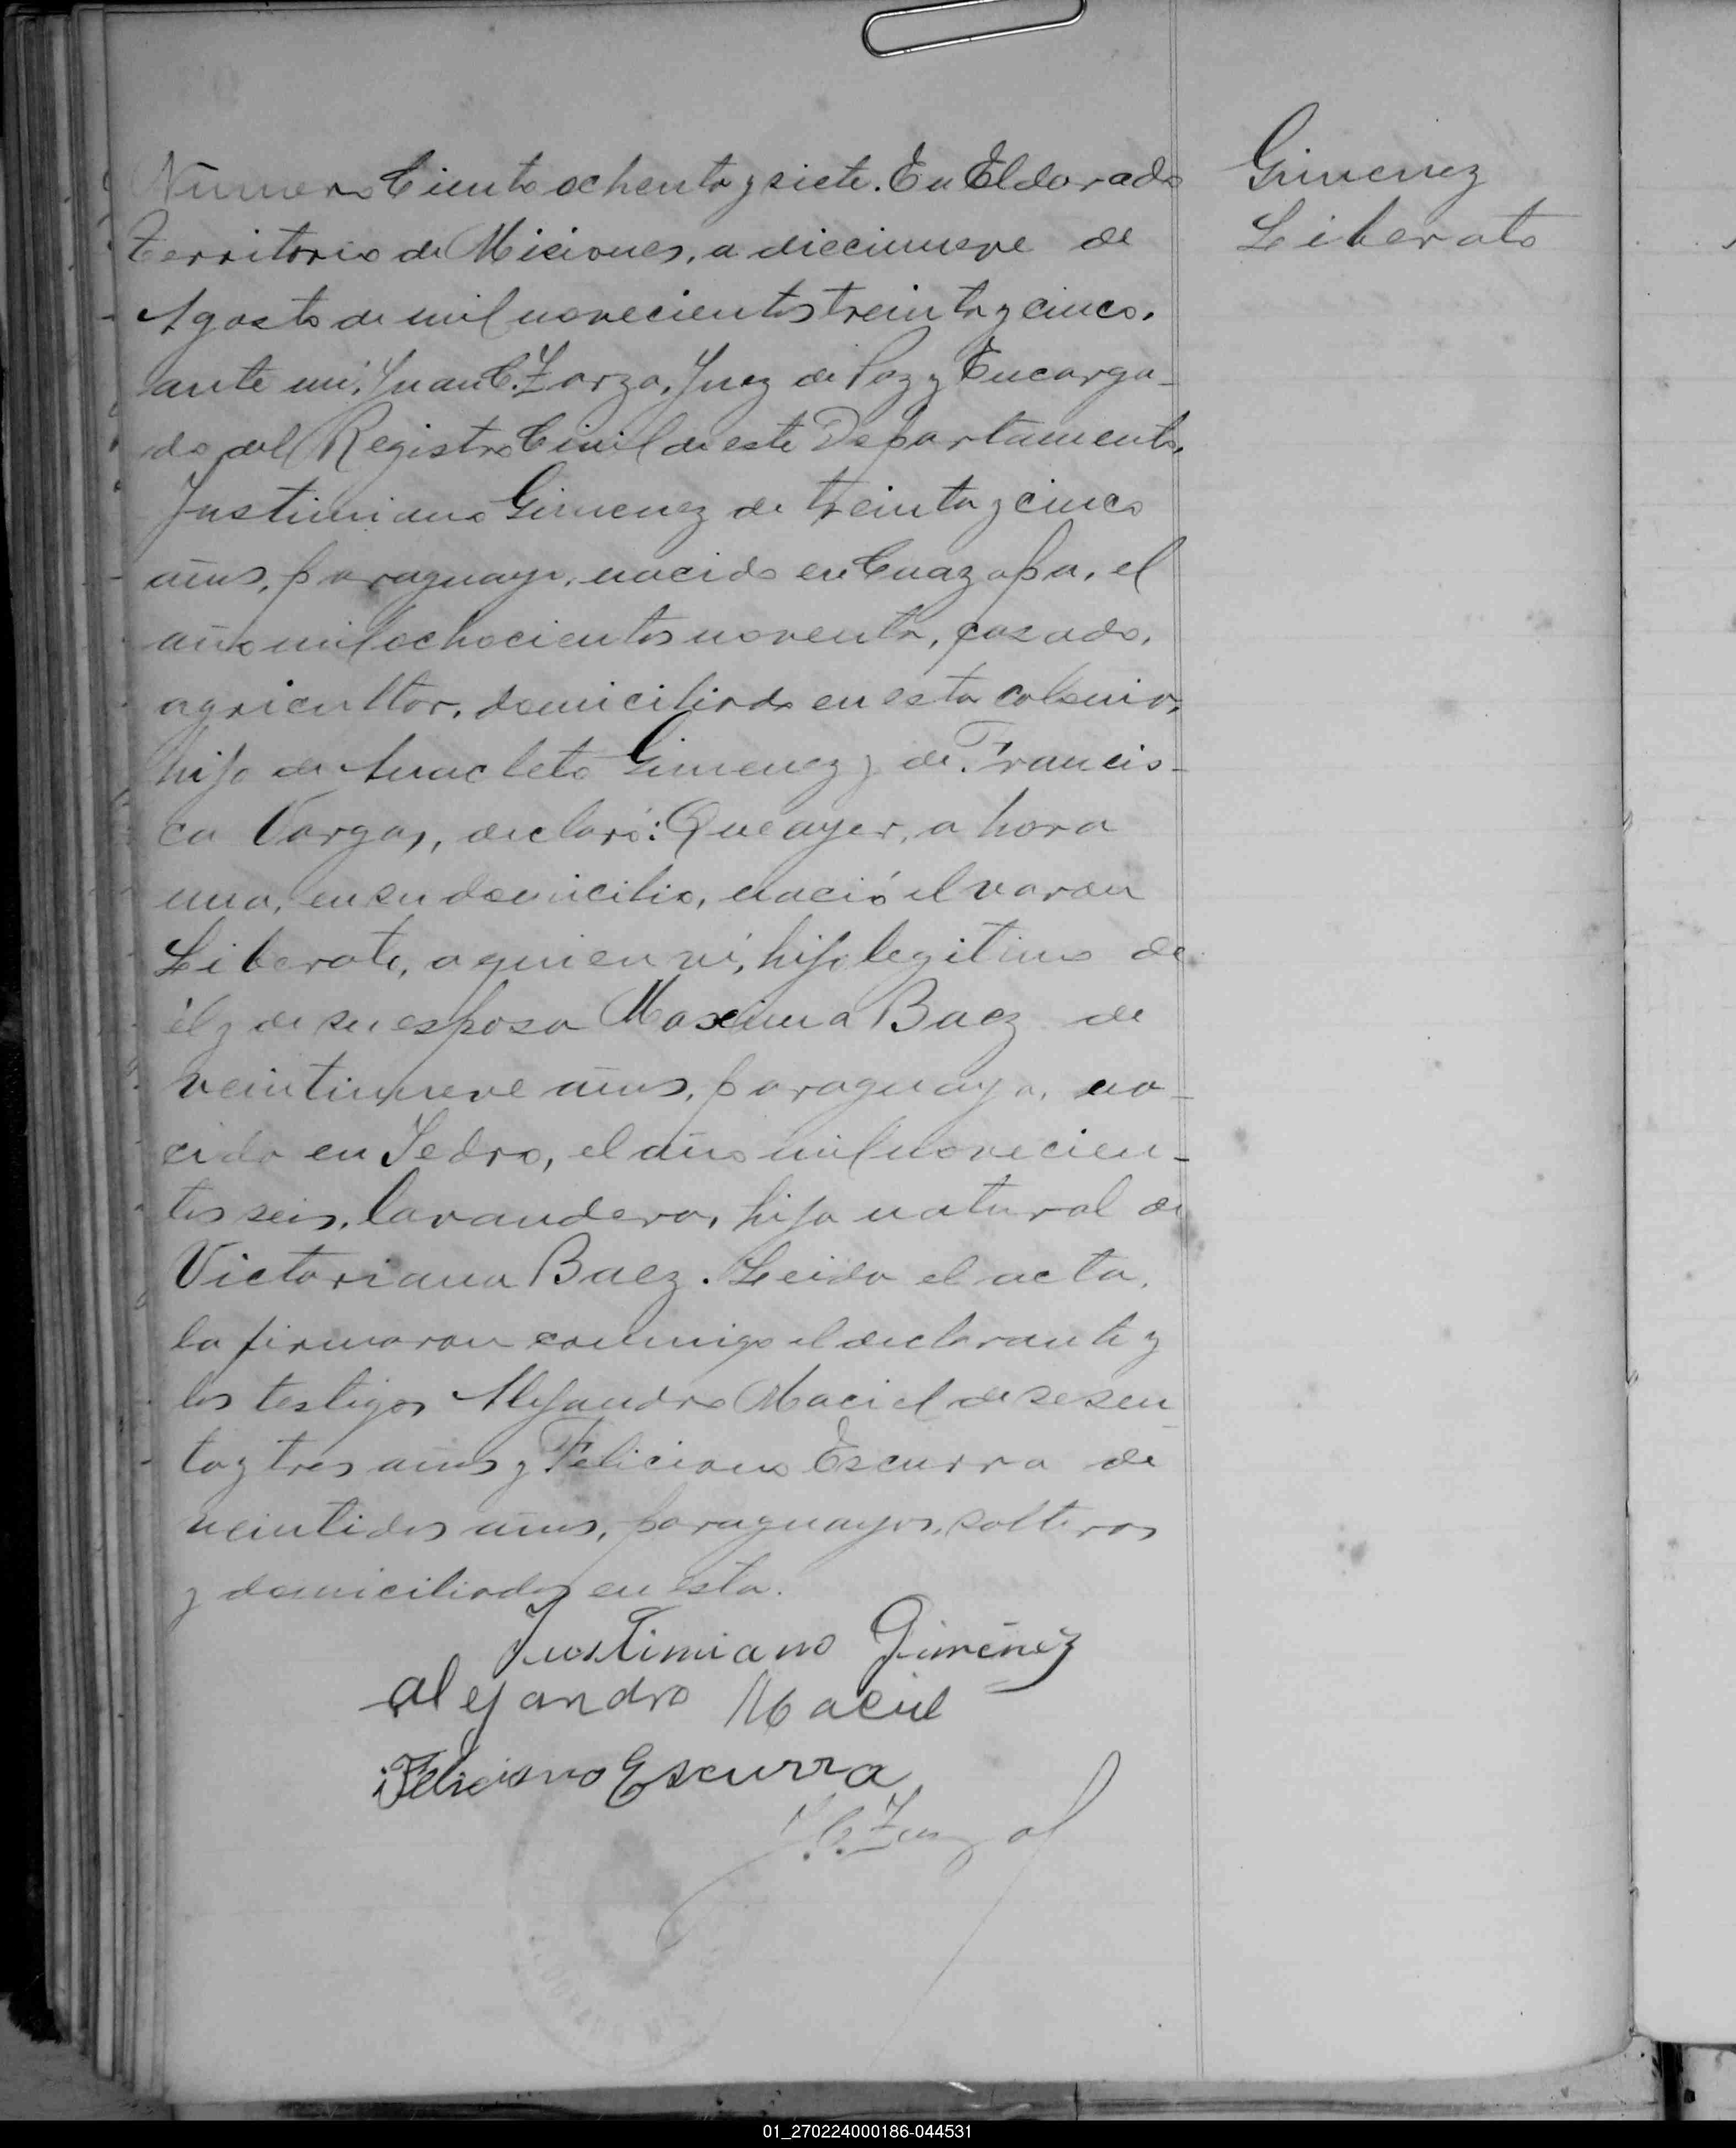 Numero Ciento ochenta y siete. En Eldorado
territorio de Misiones, a diecinueve de
Agosto de mil novecientos treinta y cinco.
ante mi, Juan C. Zarza, Juez de Paz y Encarga-
do del Registro Civil de este Departamento,
Justiniano Gimenez de treinta y cinco
años, paraguayo, nacido en Caazapa, el
año mil ochocientos noventa, casado,
agricultor, domiciliado en esta colonia,
hijo de Anacleto Gimenez y de Francis-
ca Vargas, declaró: Que ayer, a hora
una, en su domicilio, nació el varon
Liberato, a quien vi, hijo legitimo de
él y de su esposa Maxima Baez de
veintinueve años, paraguaya, na-
cida en Pedro, el año mil novecien-
tos seis, lavandera, hija natural de
Victoriana Baez. Leida el acta,
la firmaron conmigo el declarante y
los testigos Alejandro Maciel de sesen
ta y tres años y Feliciano Escurra de
veintidos años, paraguayos, solteros
y domiciliados en esta.
Justiniano Giménez
alejandro Maciel
Feliciano Escurra
J. C. Zarza
Gimenez
Liberato
01_270224000186-044531